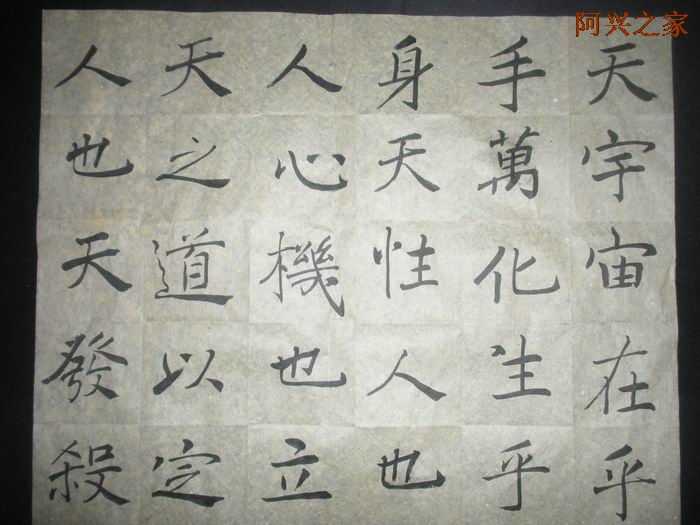 阿兴之家
天宇宙在乎
手萬化生乎
身天性人也
人心機也立
天之道以定
人也天發殺